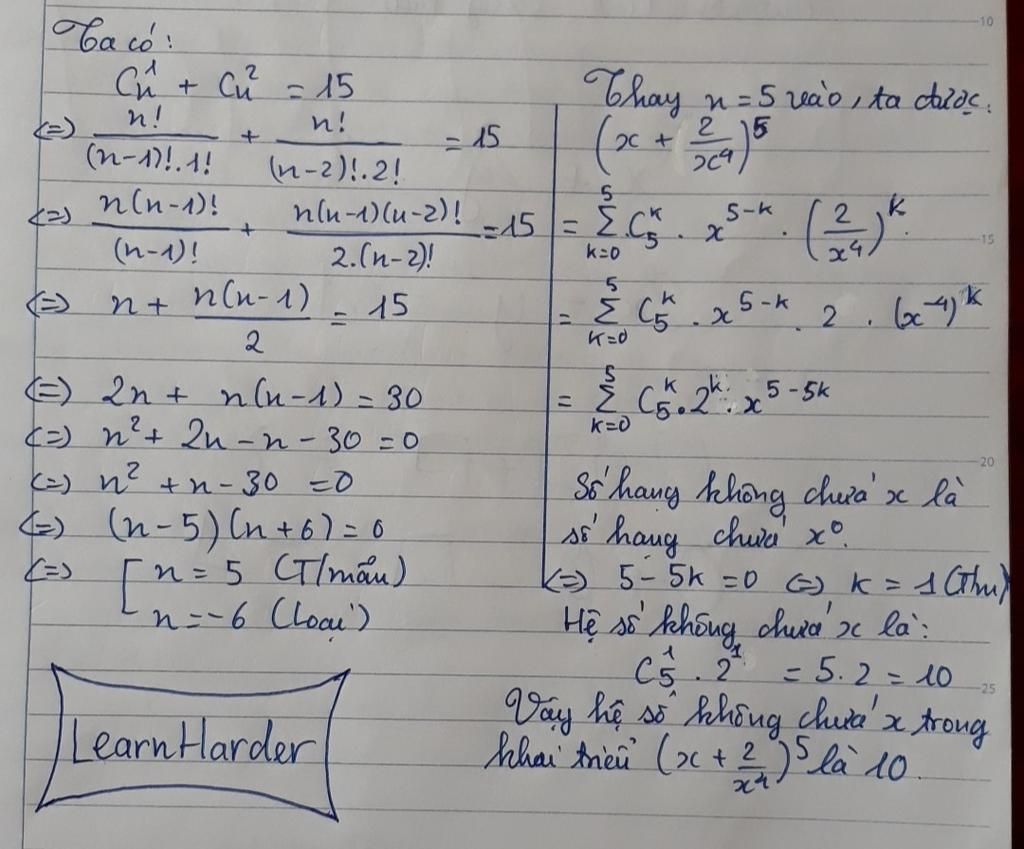 Ta có:
Cn¹ + Cn² = 15
(=) n!/((n-1)!.1!) + n!/((n-2)!.2!) = 15
(=) n(n-1)!/(n-1)! + n(n-1)(n-2)!/(2.(n-2)!) = 15
(=) n + n(n-1)/2 = 15
(=) 2n + n(n-1) = 30
(=) n² + 2n - n - 30 = 0
(=) n² + n - 30 = 0
(=) (n-5)(n+6) = 0
(=) [ n = 5 (T/mãn)
n = -6 (Loại)
LearnHarder
Thay n = 5 vào, ta được:
(x + 2/x⁴)⁵
= ∑_{k=0}^{5} C₅ᵏ . x^{5-k} . (2/x⁴)^k.
= ∑_{k=0}^{5} C₅ᵏ . x^{5-k} . 2 . (x⁻⁴)^k
= ∑_{k=0}^{5} C₅ᵏ . 2^k . x^{5-5k}
Số hạng không chứa x là
số hạng chứa x⁰.
(=) 5 - 5k = 0 (=) k = 1 (Thm)
Hệ số không chứa x là:
C₅¹ . 2¹ = 5.2 = 10
Vậy hệ số không chứa x trong
khai triển (x + 2/x⁴)⁵ là 10.
10
15
20
25